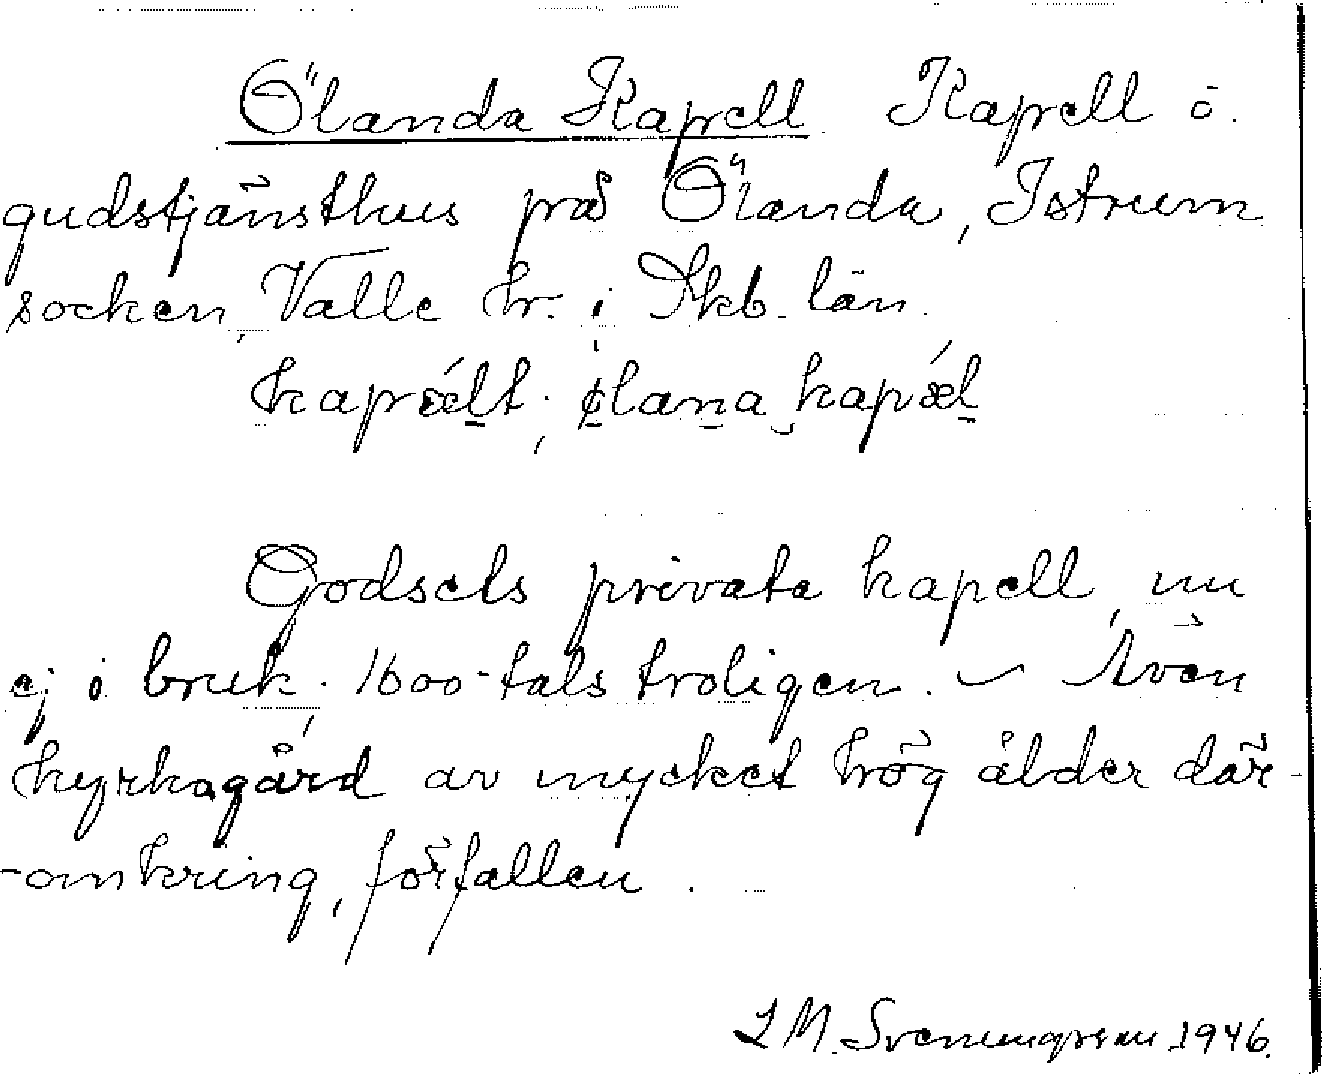 Ölanda Kapell Kapell o.
gudstjänsthus på Ölanda, Istrum
socken, Valle hr. i Skb. län.
kapǽlt; ølana kapǽl
Godsets privata kapell, nu
ej i bruk. 1600-tals troligen. – Även
kyrkogård av mycket hög ålder där-
-omkring, förfallen.
L M. Svenungsson 1946.